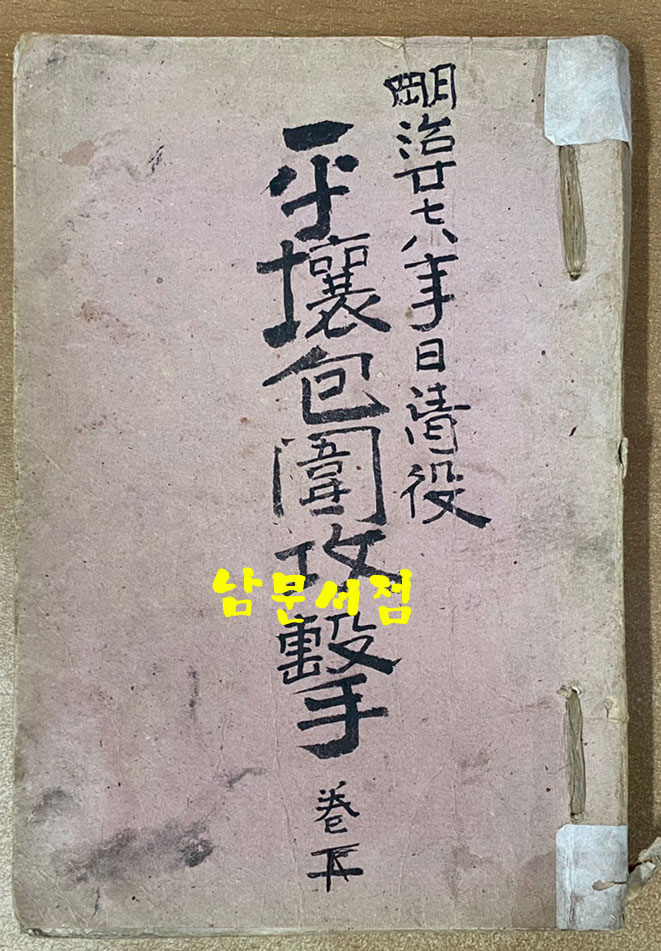 朙治廿七八年日清役
平壤包圍攻擊
巻
남문서점